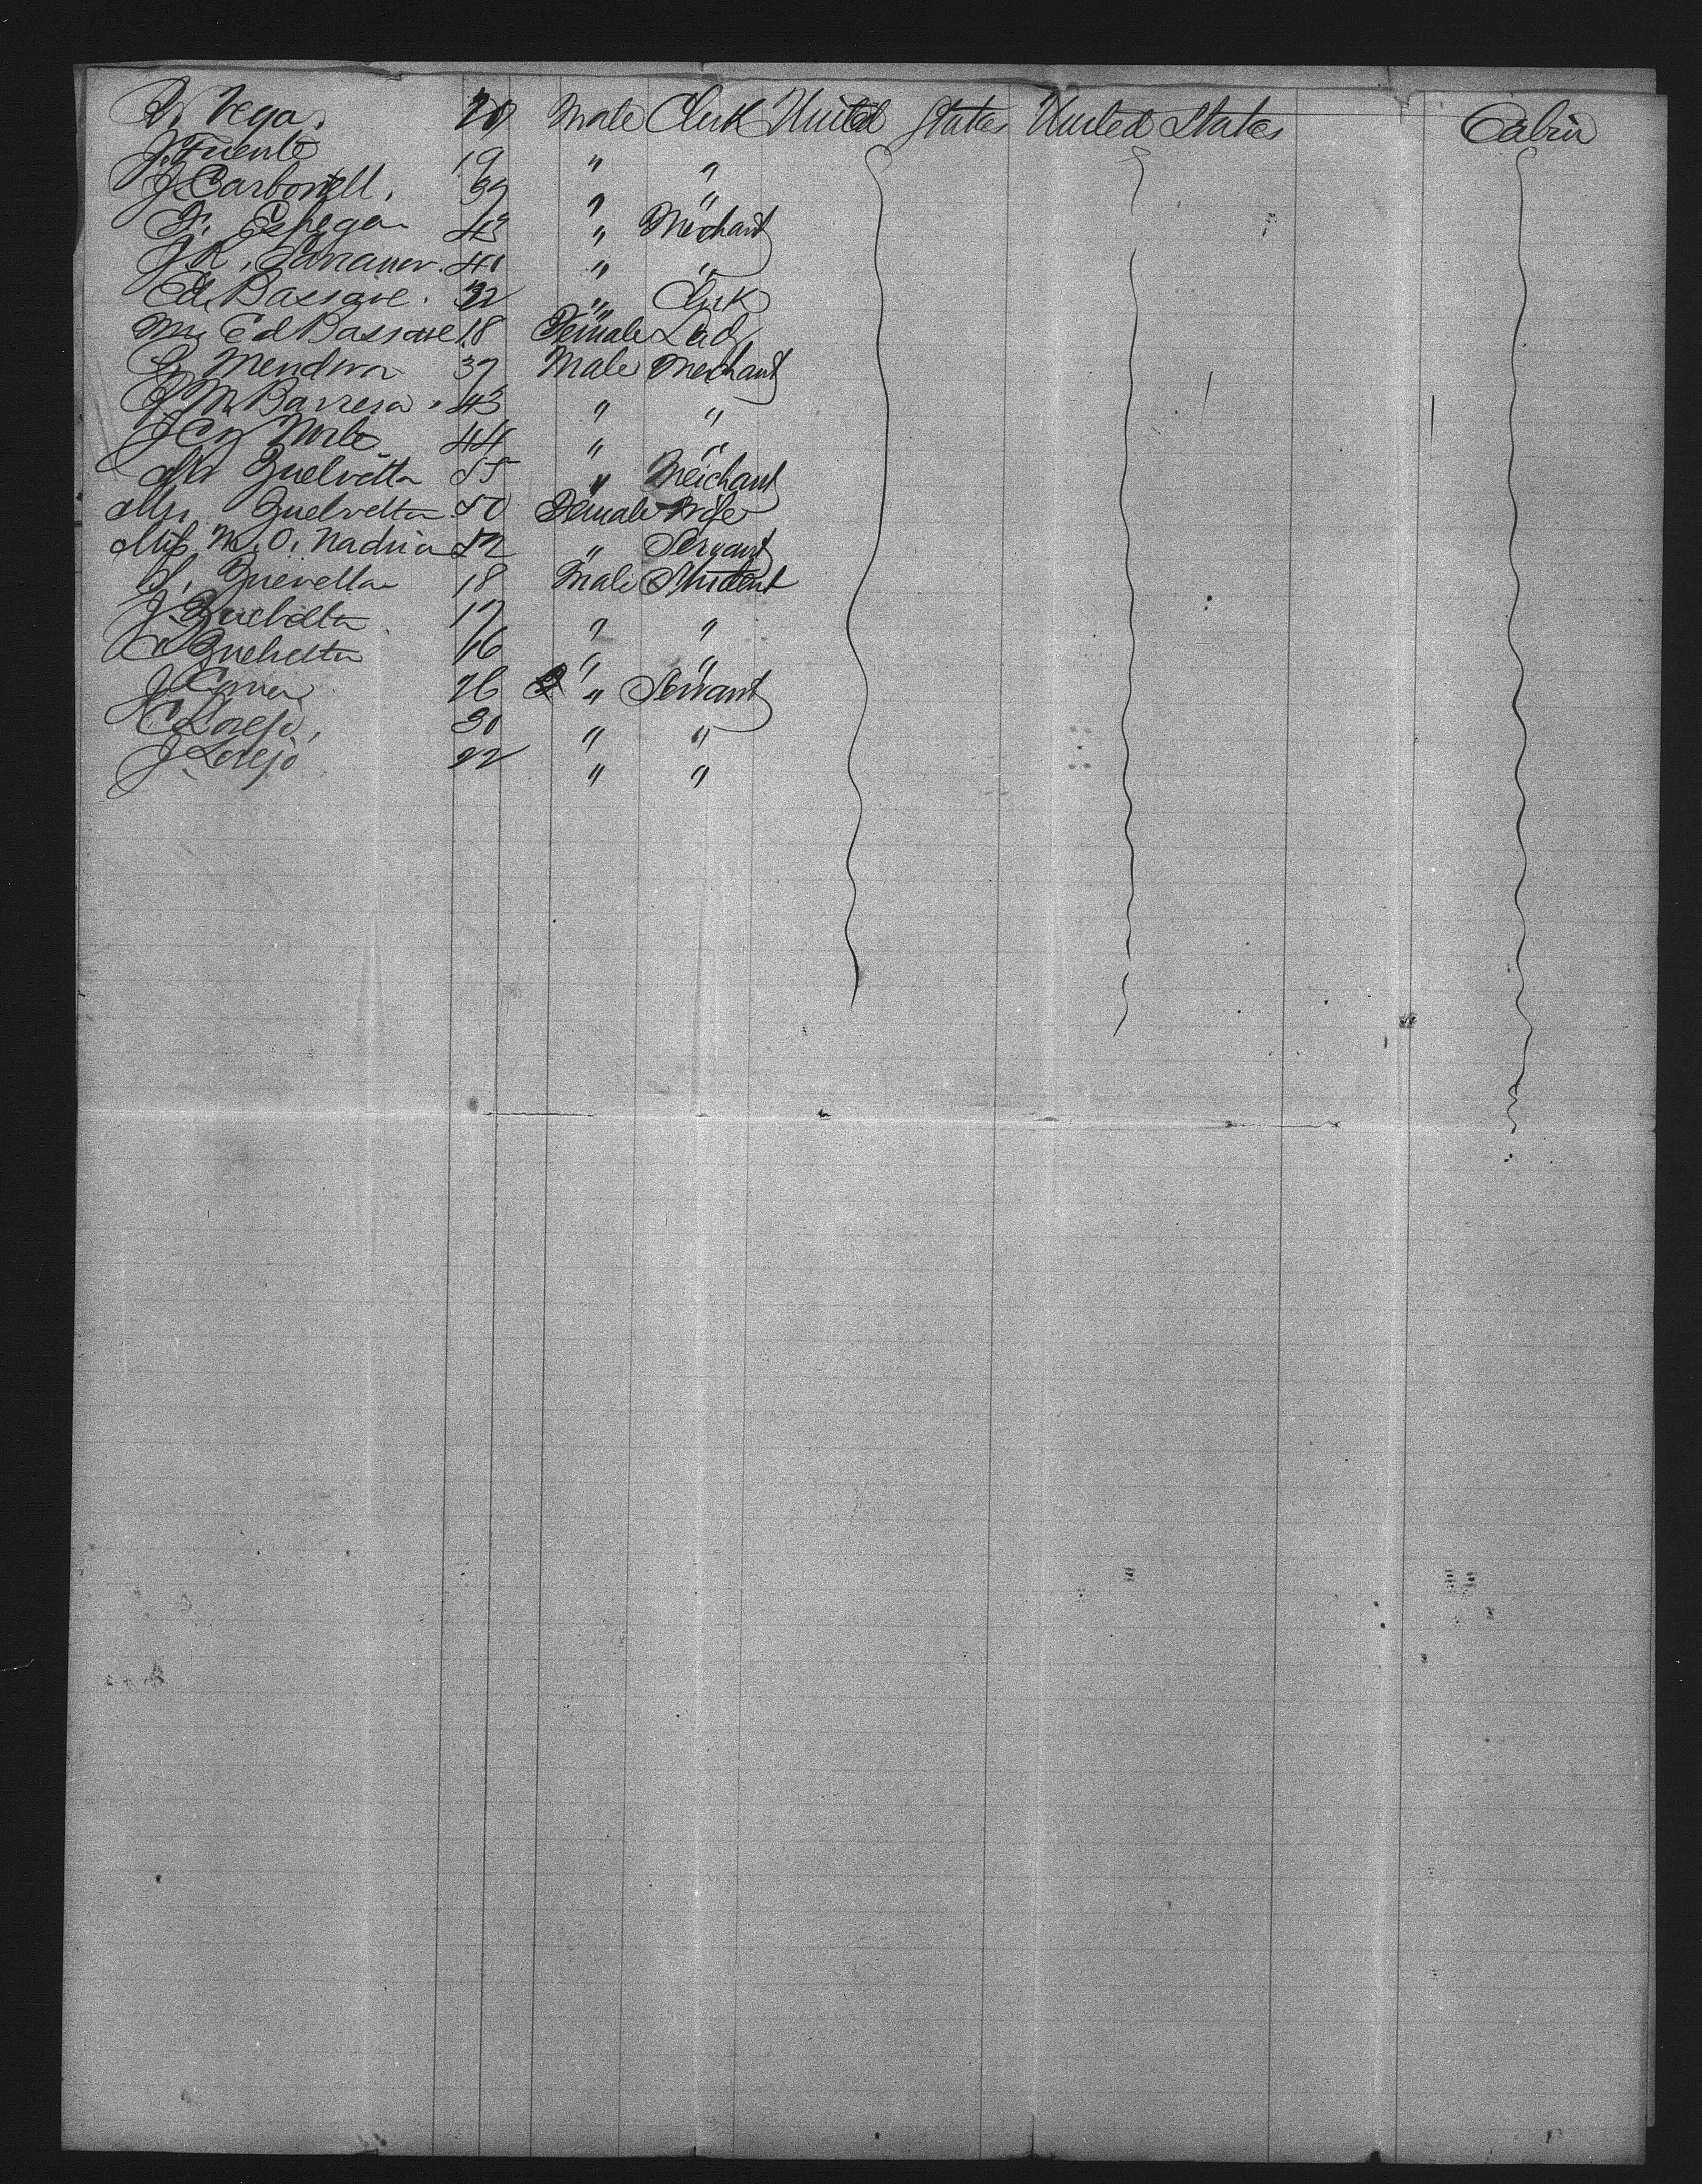 Vega. 20 Male Clerk United States United States Cabin
J. Fuente 19 " "
J Carbonell. 39 " "
F. Espegan 43 " Merchant
J R. 40 " "
Ed Bassave. 32 " Clerk
Mrs Ed Bassave 18 Female Lady
Mendiva 37 Male Merchant
J. M. Barrera. 43 " "
J C 44 " "
Mr Quelvetta 55 " Merchant
Mrs. Quelvetta 50 Female Wife
Miss M. O. Nadria 52 " Servant
Quevetta 18 Male Student
J. Quelvetta 17 " "
Quelvetta 16 " "
J 26 " Servant
C Lorejo, 30 " "
J Lorejo 22 " "